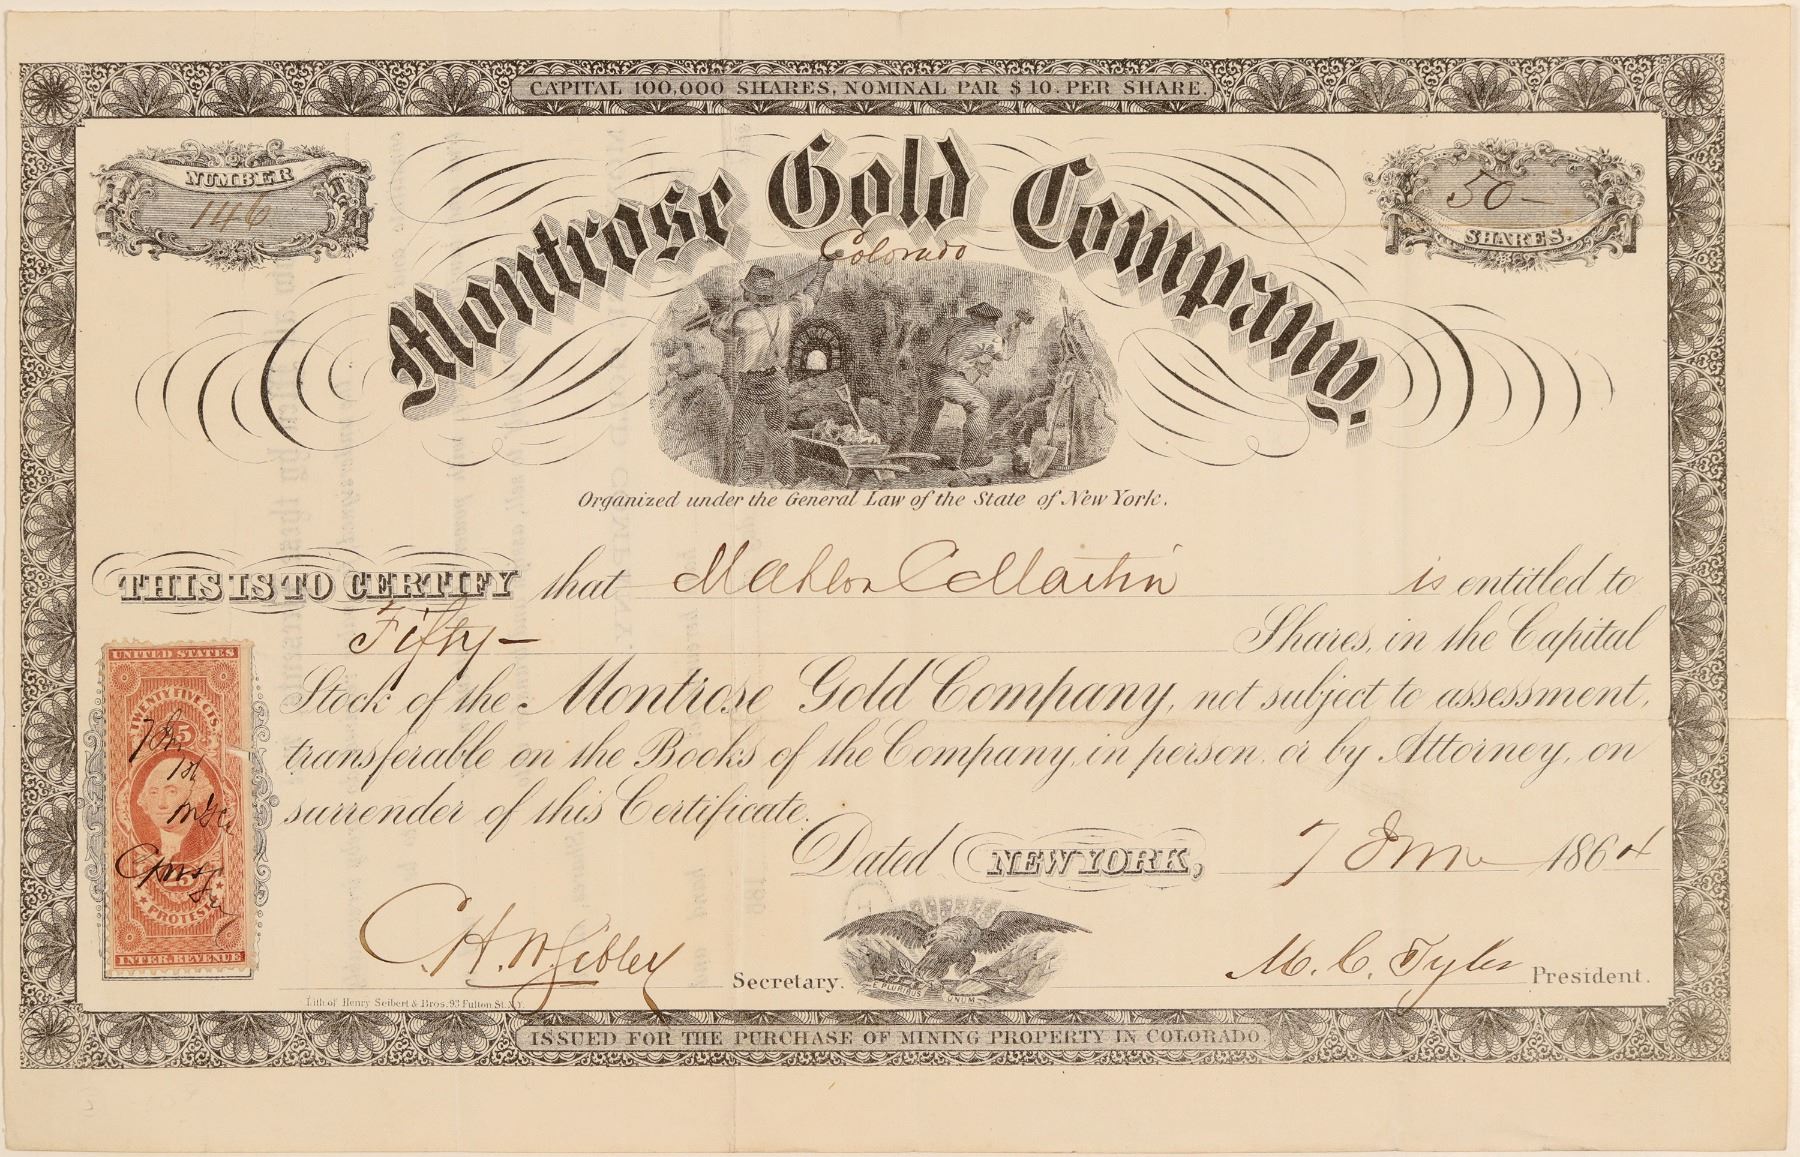 CAPITAL 100,000 SHARES, NOMINAL PAR $10. PER SHARE.
NUMBER
146
50-
SHARES.
Montrose Gold Company.
Colorado
Organized under the General Law of the State of New York.
THIS IS TO CERTIFY that Mahlon C Martin is entitled to
Fifty- Shares, in the Capital
Stock of the Montrose Gold Company, not subject to assessment,
transferable on the Books of the Company, in person, or by Attorney, on
surrender of this Certificate.
Dated NEW YORK, 7 June 1864
UNITED STATES
TWENTY FIVE CTS
25
25
PROTEST
INTER. REVENUE
C.H.W. Sibley Secretary.
E PLURIBUS UNUM
M. C. Tyler President.
Lith of Henry Seibert & Bros. 93 Fulton St. N.Y.
ISSUED FOR THE PURCHASE OF MINING PROPERTY IN COLORADO